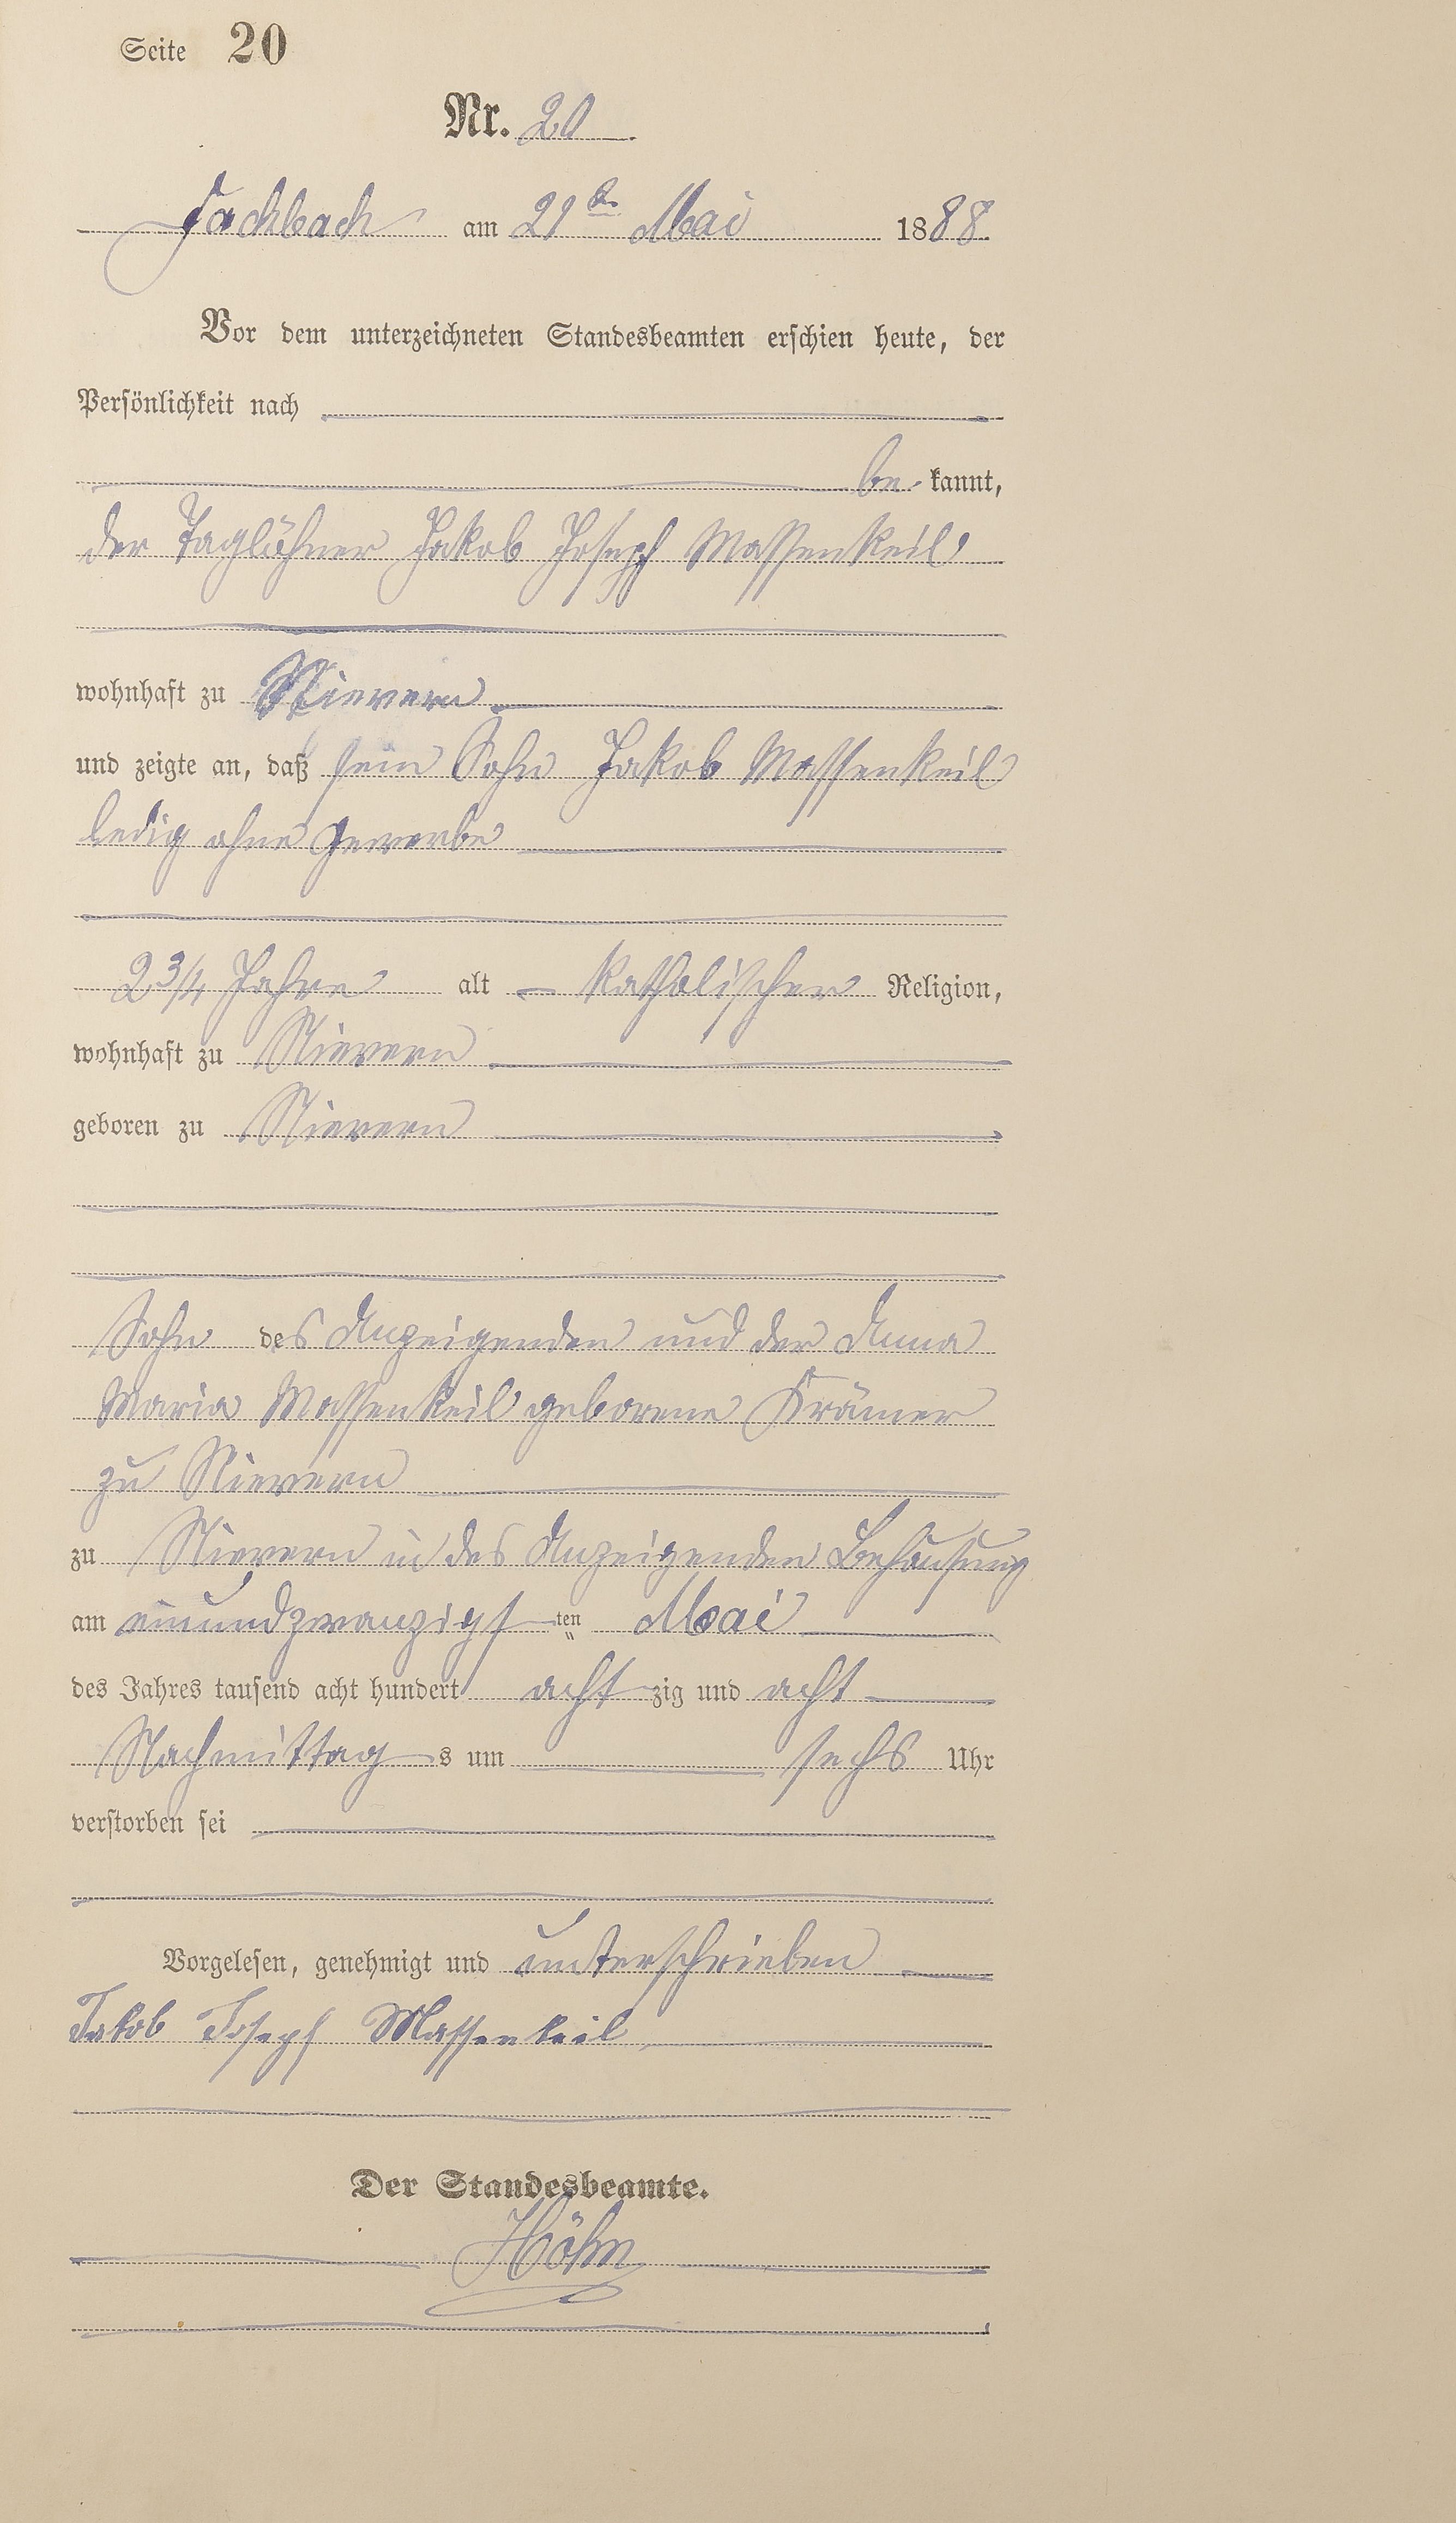 Seite 20
Nr. 20
Fachbach am 21ten Mai 1888.
Vor dem unterzeichneten Standesbeamten erschien heute, der
Persönlichkeit nach
be kannt,
der Taglöhner Jakob Joseph Massenkeil
wohnhaft zu Nievern
und zeigte an, daß sein Sohn Jakob Massenkeil
ledig ohne Gewerbe
2 3/4 Jahre alt katholischer Religion,
wohnhaft zu Nievern
geboren zu Nievern
Sohn des Anzeigenden und der Anna
Maria Massenkeil geborene Krämer
zu Nievern
zu Nievern in des Anzeigenden Behausung
am einundzwanzigsten Mai
des Jahres tausend acht hundert acht zig und acht
Nachmittags um sechs Uhr
verstorben sei
Vorgelesen, genehmigt und unterschrieben
Jakob Joseph Massenkeil
Der Standesbeamte.
Höhn